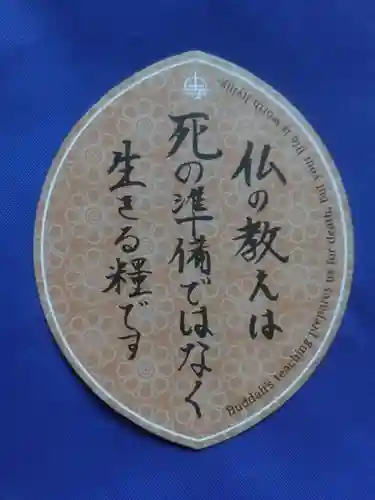 仏の教えは
死の準備ではなく
生きる糧です
Buddah's teaching prepares us for death, but your life is worth living.